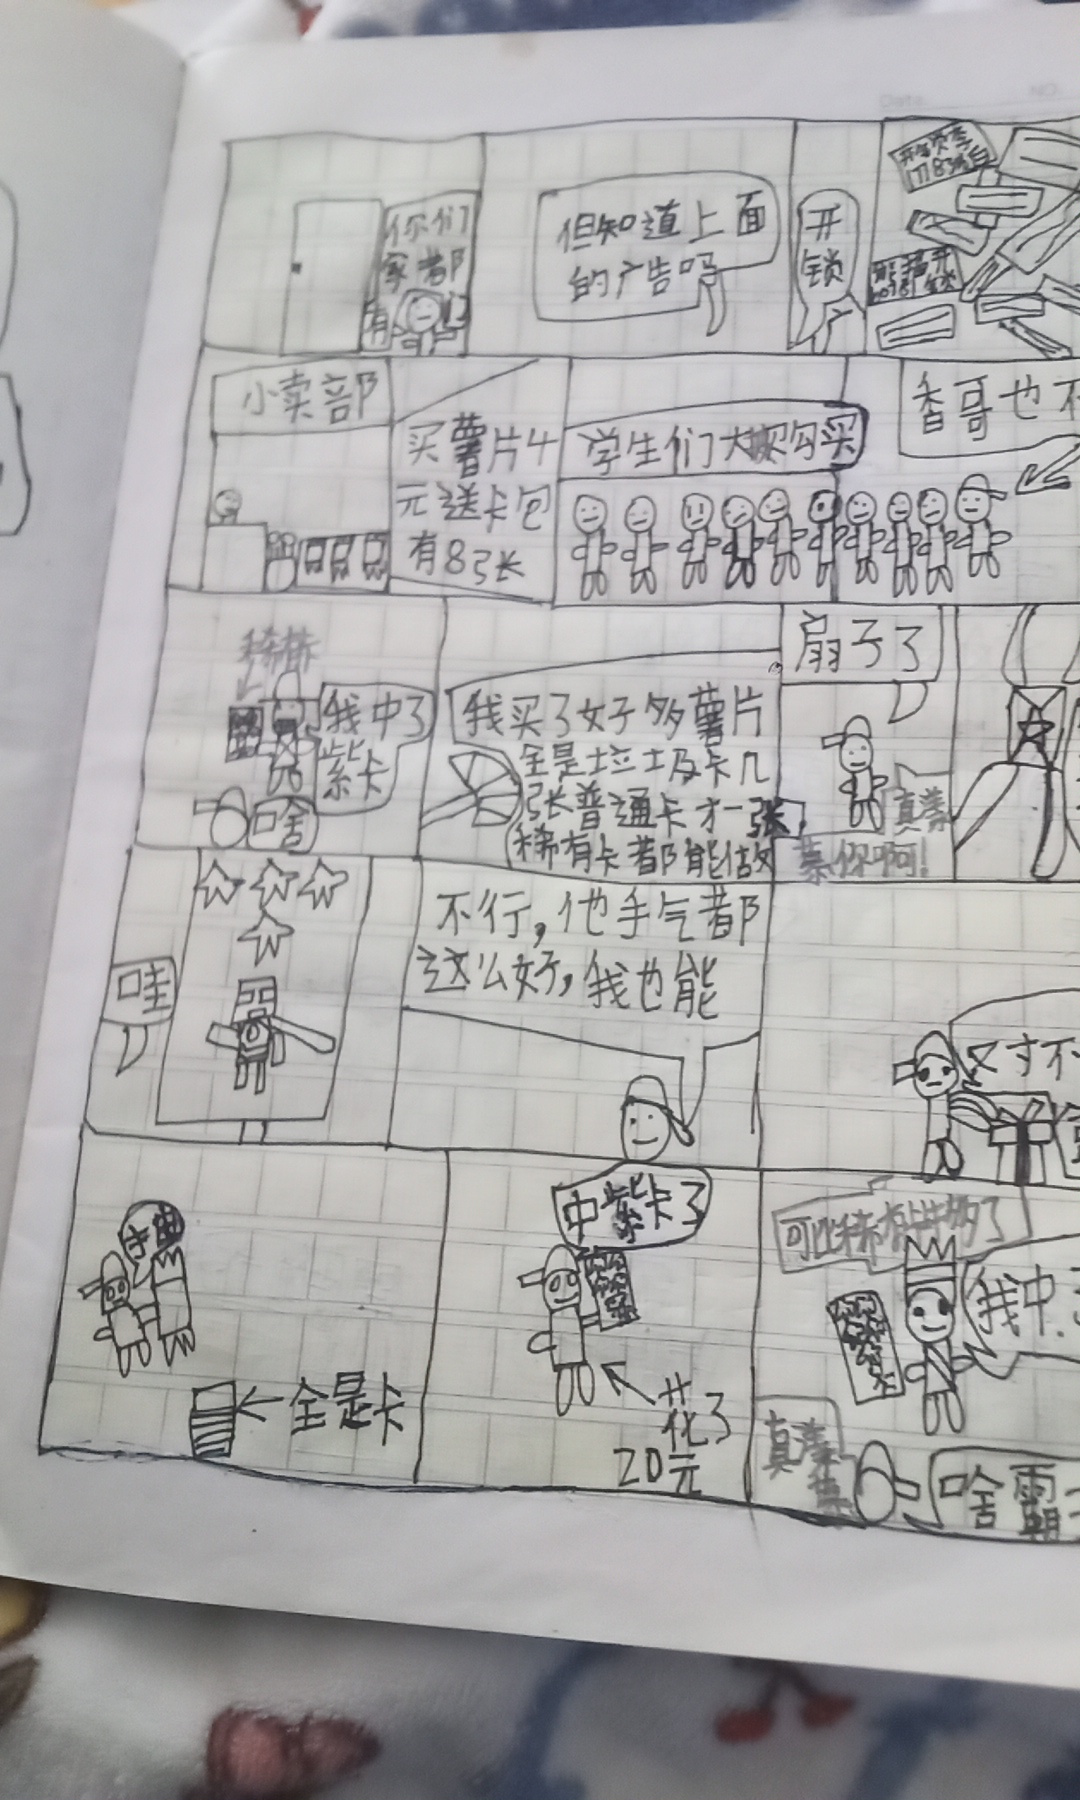 你们
家都
有
但知道上面
的广告吗
开
锁
小卖部
买薯片4
元送卡包
有8张
学生们大概勾买
香哥也不
稀
我中了
紫卡
啥
我买了好多薯片
全是垃圾卡几
张普通卡才一张
稀有卡都能做
扇子了
真羡
慕你啊!
哇
不行,他手气都
这么好,我也能
又寸不
中紫卡了
全是卡
花了
20元
可比稀有卡
我中
真羡
慕
啥霸